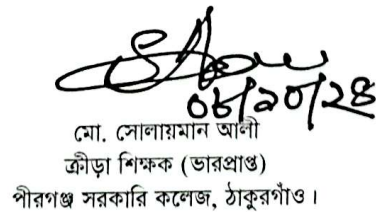 ০৮/১০/২৪
মো. সোলায়মান আলী
ক্রীড়া শিক্ষক (ভারপ্রাপ্ত)
পীরগঞ্জ সরকারি কলেজ, ঠাকুরগাঁও।